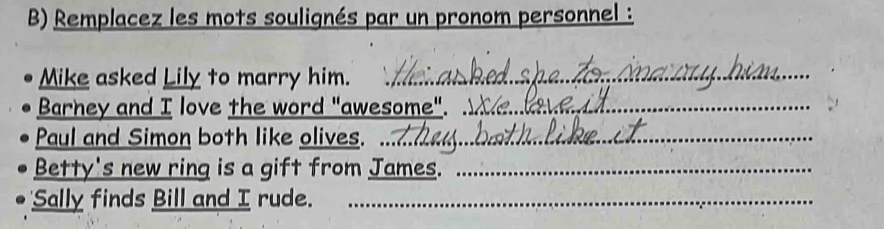 B) Remplacez les mots soulignés par un pronom personnel :
• Mike asked Lily to marry him. Hi asked she to marry him
• Barney and I love the word "awesome". We love it
• Paul and Simon both like olives. they both like it
• Betty's new ring is a gift from James.
• Sally finds Bill and I rude.